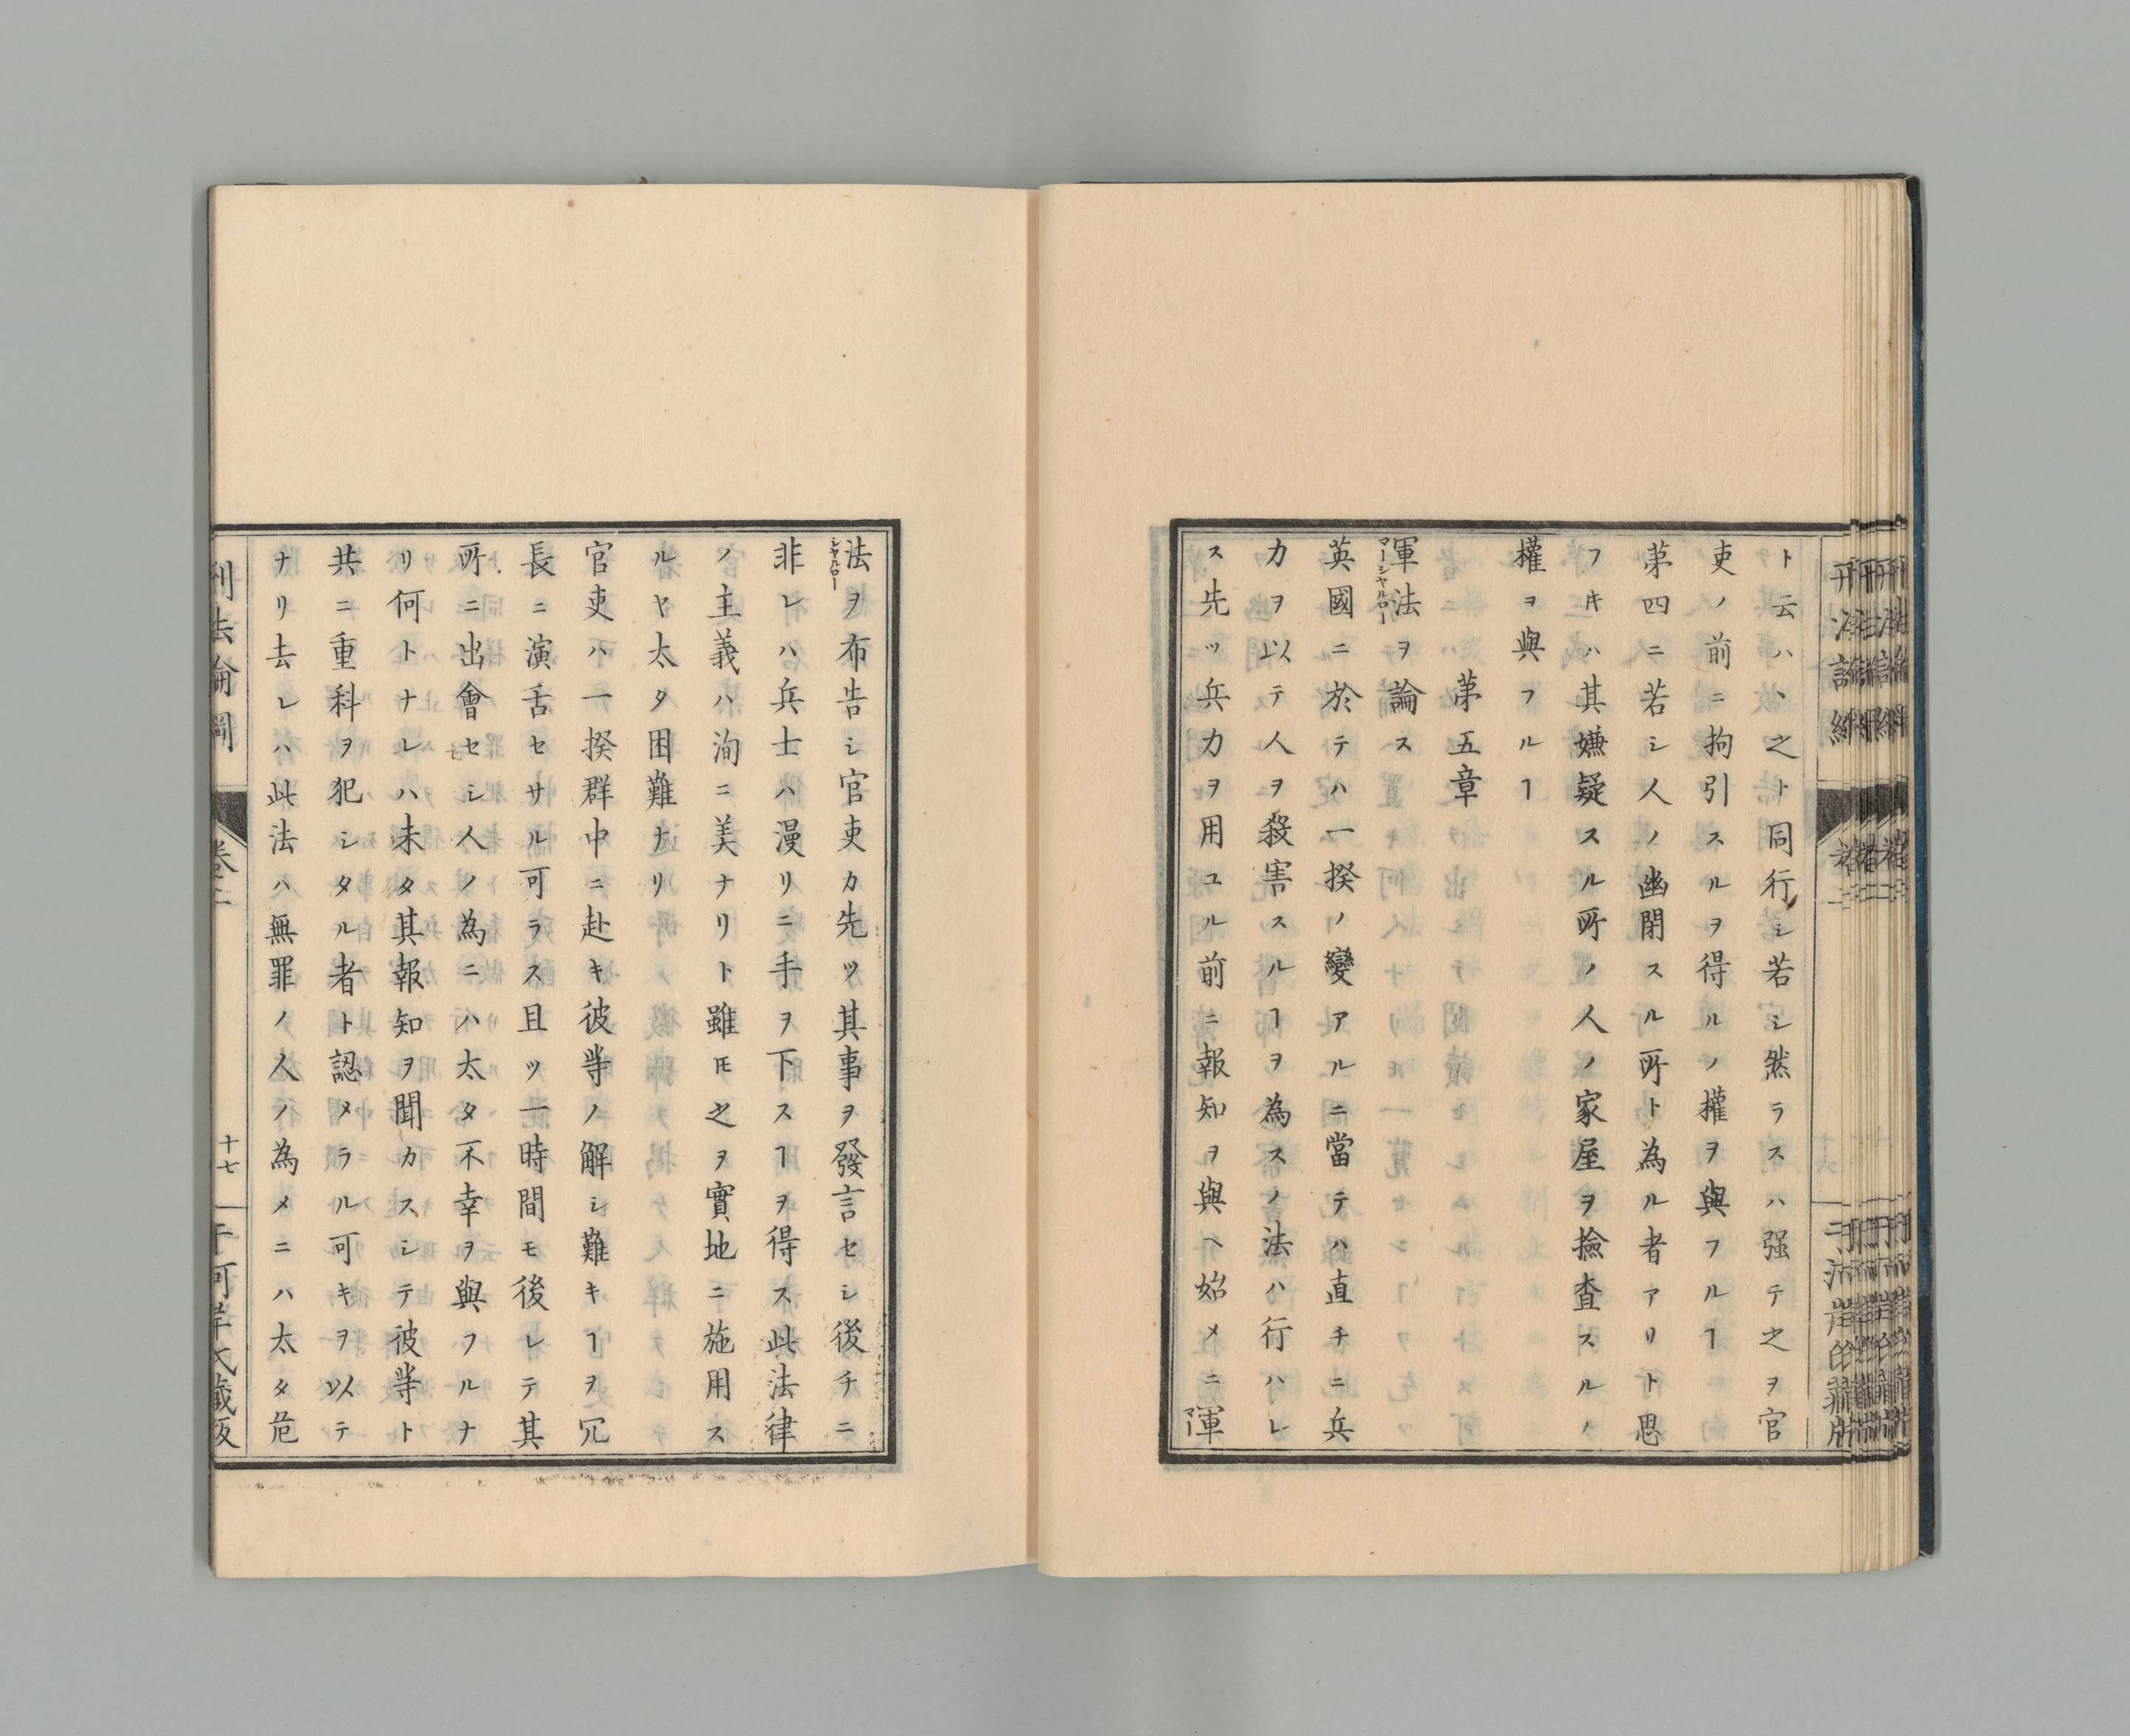 ト云ハヽ之ト同行シ若シ然ラスハ强テ之ヲ官
吏ノ前ニ拘引スルヲ得ルノ權ヲ與フルヿ
第四ニ若シ人ノ幽閉スル所ト為ル者アリト思
フキハ其嫌疑スル所ノ人ノ家屋ヲ撿査スルノ
權ヲ與フルヿ
第五章
軍法ヲ論ス
マーシャルロー
英國ニ於テハ一揆ノ變アルニ當テハ直チニ兵
力ヲ以テ人ヲ殺害スルヿヲ為スノ法ハ行ハレ
ス先ッ兵力ヲ用ユル前ニ報知ヲ與ヘ始メニ軍
マー
法ヲ布告シ官吏カ先ッ其事ヲ發言セシ後チニ
シャルロー
非レハ兵士ハ漫リニ手ヲ下スヿヲ得ス此法律
ノ主義ハ洵ニ美ナリト雖𪜈之ヲ實地ニ施用ス
ルヤ太タ困難ナリ
官吏ハ一揆群中ニ赴キ彼等ノ解シ難キヿヲ冗
長ニ演舌セサル可ラス且ッ一時間モ後レテ其
所ニ出會セシ人ノ為ニハ太タ不幸ヲ與フルナ
リ何トナレハ未タ其報知ヲ聞カスシテ彼等ト
共ニ重科ヲ犯シタル者ト認メラル可キヲ以テ
ナリ去レハ此法ハ無罪ノ人ノ為メニハ太タ危
刑法論綱
卷二
十七
河岸氏藏版